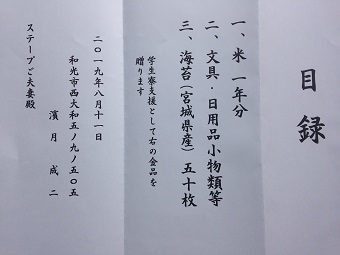 目録
一、米 一年分
二、文具・日用品小物類等
三、海苔(宮城県産)五十枚
学生寮支援として右の金品を
贈ります
二〇一九年八月十一日
和光市西大和五ノ九ノ五〇五
濱月成二
ステープご夫妻殿